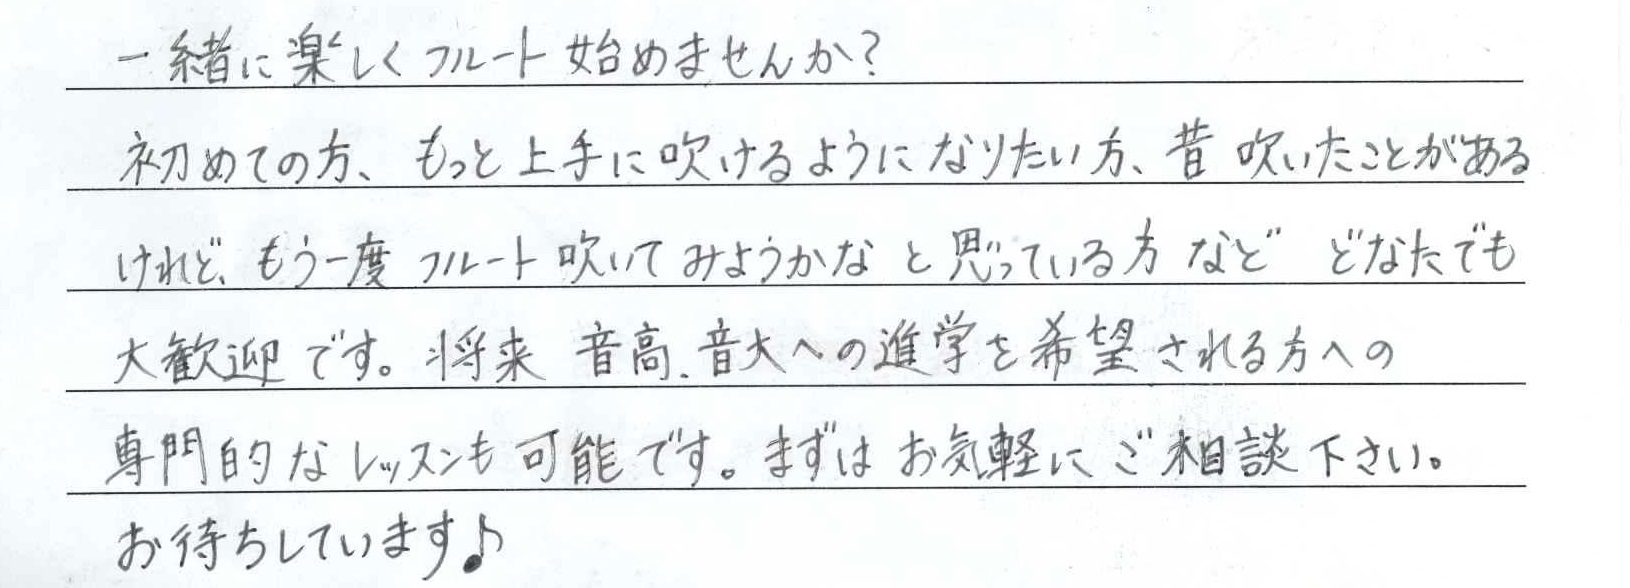 一緒に楽しくフルート始めませんか?
初めての方、もっと上手に吹けるようになりたい方、昔吹いたことがある
けれど、もう一度フルート吹いてみようかなと思っている方などどなたでも
大歓迎です。将来 音高、音大への進学を希望される方への
専門的なレッスンも可能です。まずはお気軽にご相談下さい。
お待ちしています♪